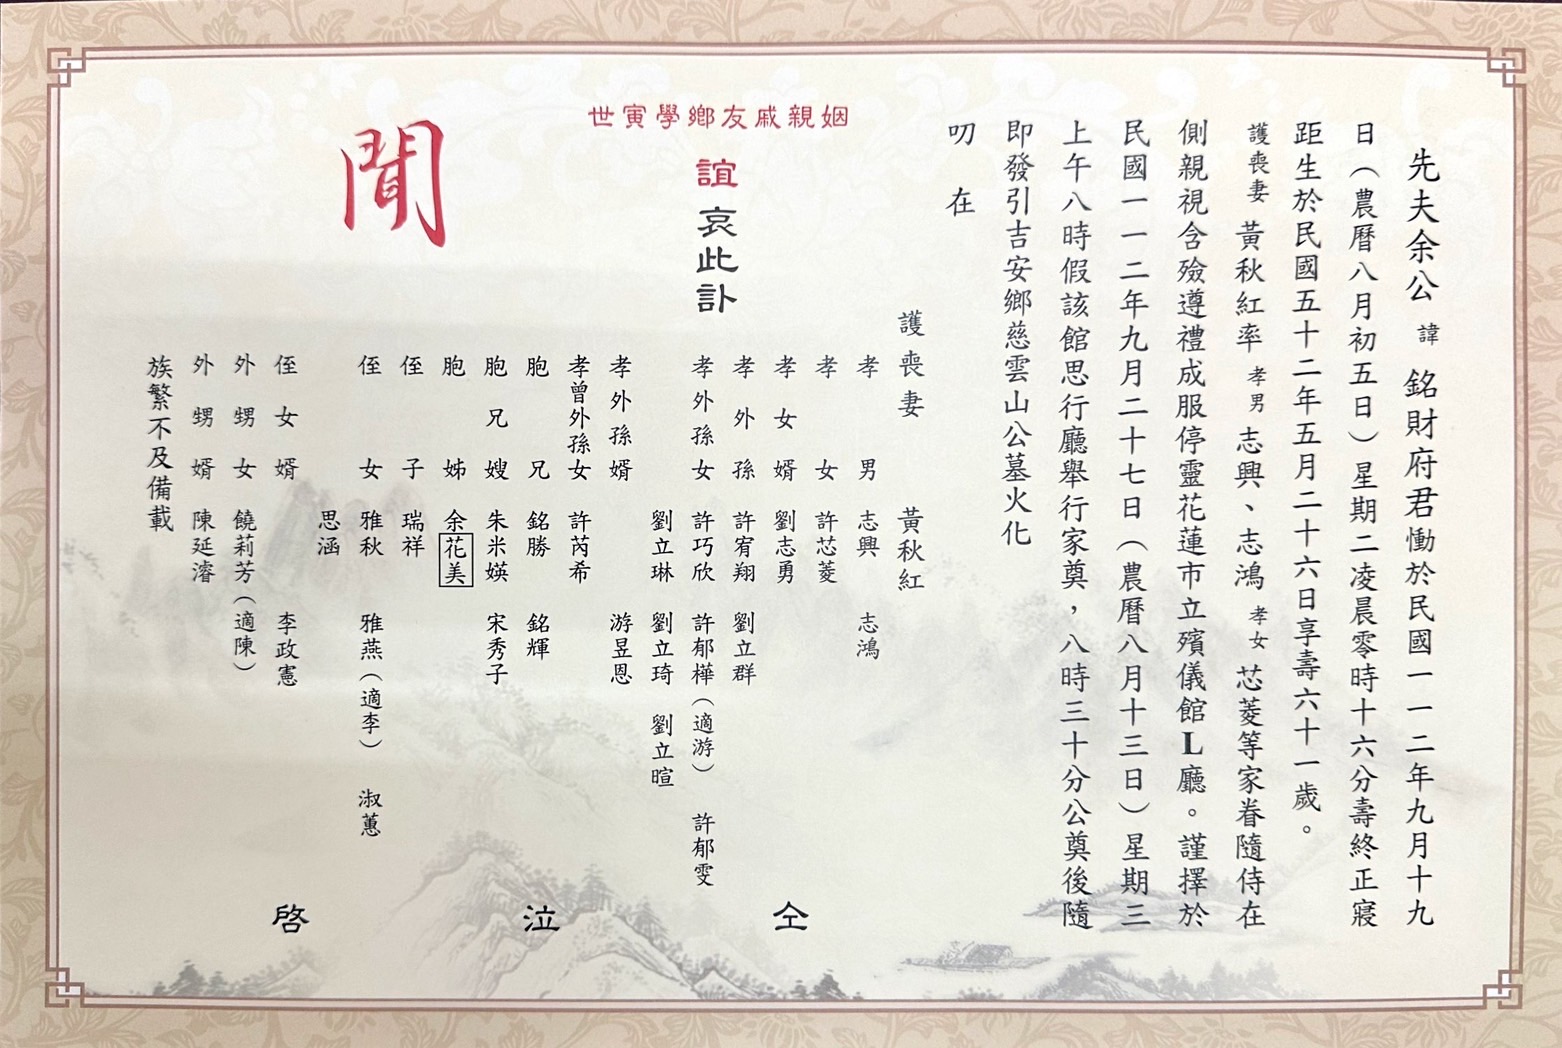 先夫余公 諱 銘財府君慟於民國一一二年九月十九
日（農曆八月初五日）星期二凌晨零時十六分壽終正寢
距生於民國五十二年五月二十六日享壽六十一歲。
護喪妻 黃秋紅率 孝男 志興、志鴻 孝女 芯菱等家眷隨侍在
側親視含殮遵禮成服停靈花蓮市立殯儀館L廳。謹擇於
民國一一二年九月二十七日（農曆八月十三日）星期三
上午八時假該館思行廳舉行家奠，八時三十分公奠後隨
即發引吉安鄉慈雲山公墓火化
叨 在
世寅學鄉友戚親姻
誼哀此訃
聞
護喪妻 黃秋紅
孝男 志興 志鴻
孝女 許芯菱
孝女婿 劉志勇
孝外孫 許宥翔 劉立群
孝外孫女 許巧欣 許郁樺（適游） 許郁雯
劉立琳 劉立琦 劉立暄
孝外孫婿 游昱恩
孝曾外孫女 許芮希
胞兄 銘勝 銘輝
胞兄嫂 朱米媖 宋秀子
胞姊 余花美
侄子 瑞祥
侄女 雅秋 雅燕（適李） 淑蕙
思涵
侄女婿 李政憲
外甥女 饒莉芳（適陳）
外甥婿 陳延濬
族繁不及備載
仝 泣 啓